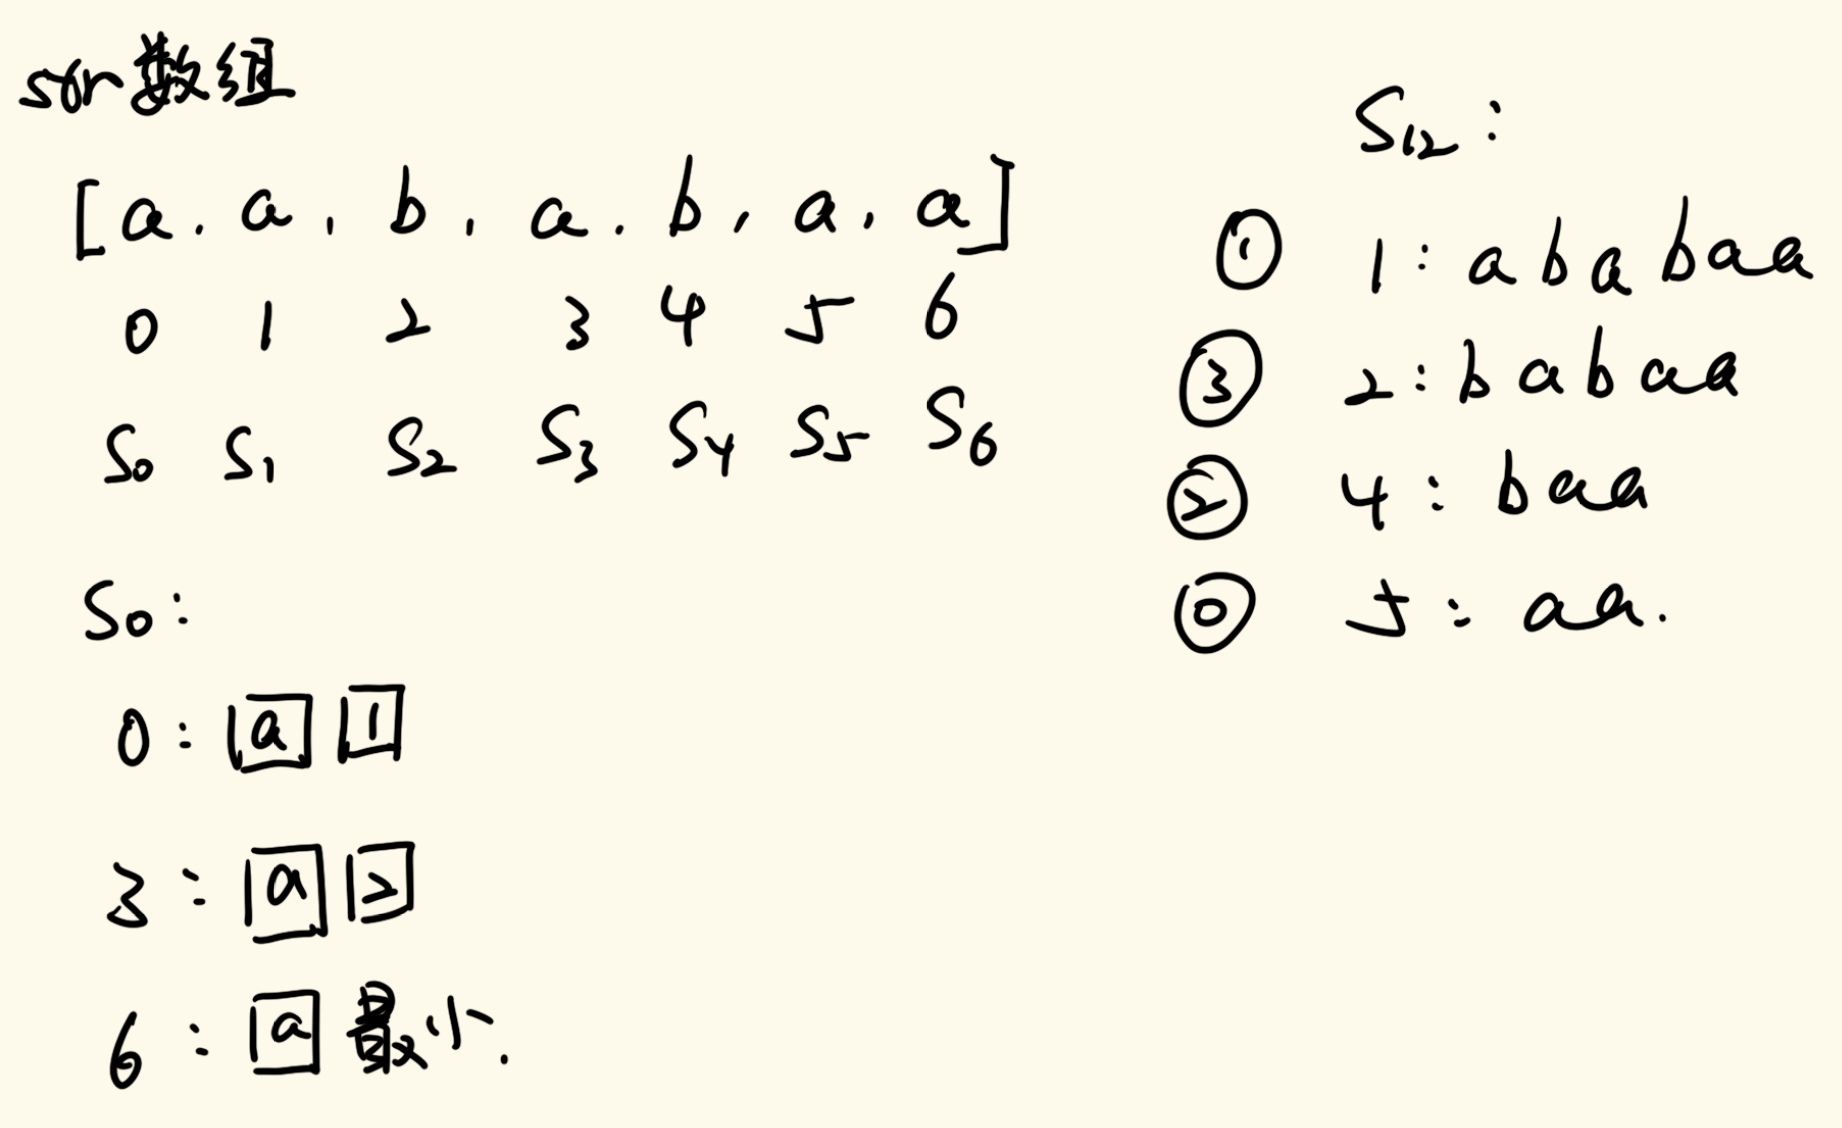 str数组
[a, a, b, a, b, a, a]
0 1 2 3 4 5 6
S0 S1 S2 S3 S4 S5 S6
S0:
0: a 1
3: a 2
6: a 最小.
S12:
① 1: ababaa
③ 2: babaa
② 4: baa
⓪ 5: aa.